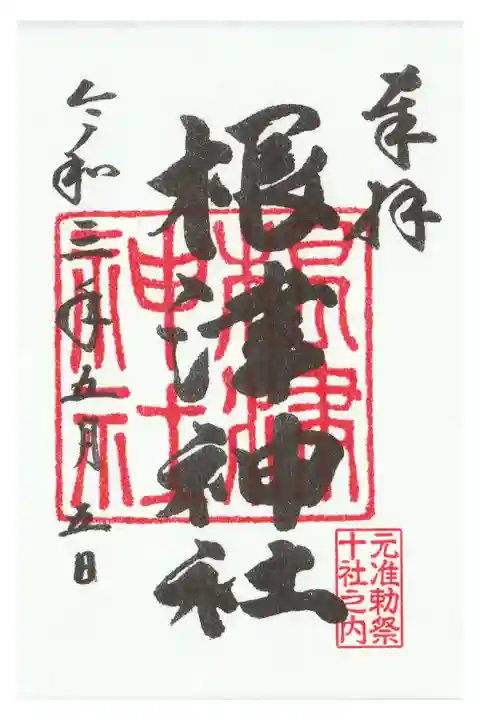 奉拝
根津神社
根津
神社
令和三年五月五日
元准勅祭
十社之内